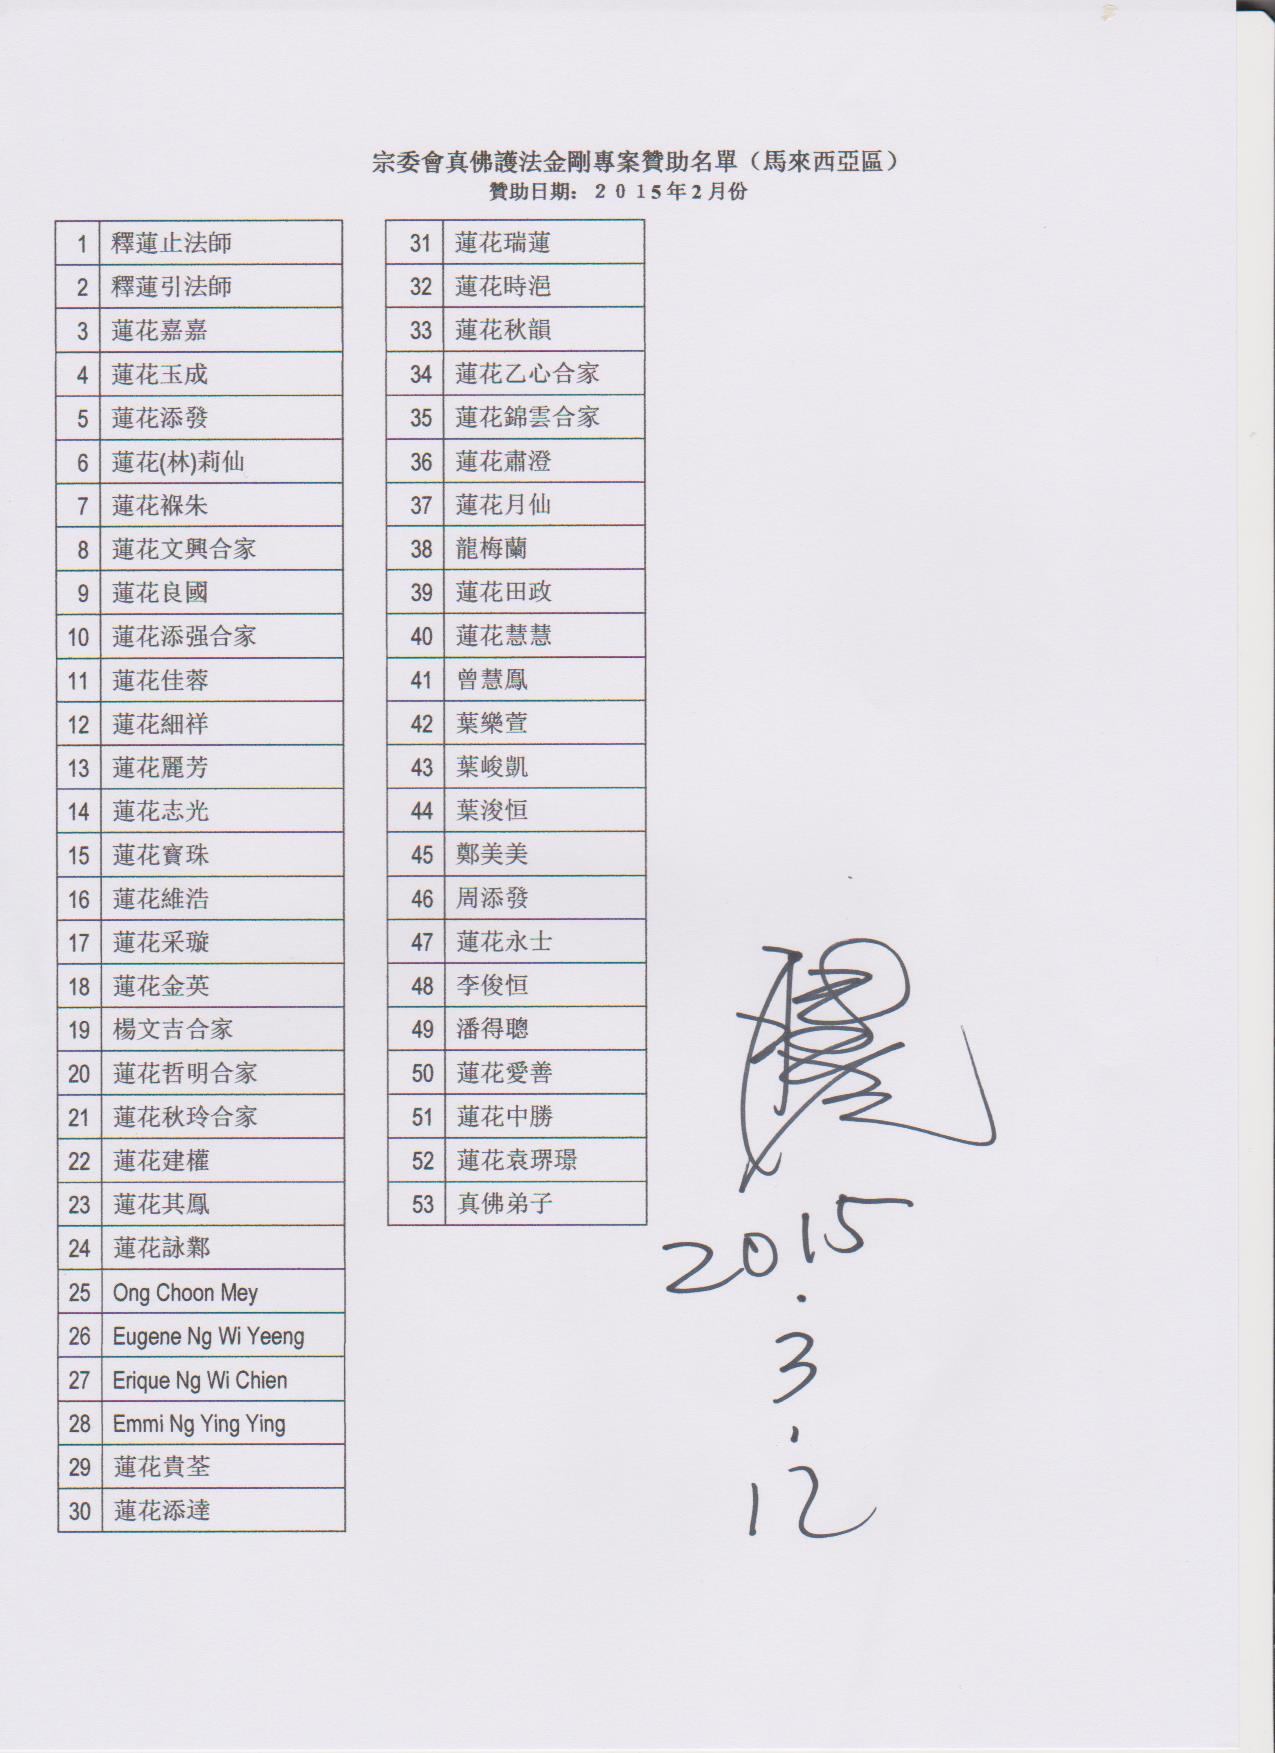 宗委會真佛護法金剛專案贊助名單（馬來西亞區）
贊助日期：２０１５年２月份
1 釋蓮止法師
2 釋蓮引法師
3 蓮花嘉嘉
4 蓮花玉成
5 蓮花添發
6 蓮花(林)莉仙
7 蓮花褓朱
8 蓮花文興合家
9 蓮花良國
10 蓮花添强合家
11 蓮花佳蓉
12 蓮花細祥
13 蓮花麗芳
14 蓮花志光
15 蓮花寶珠
16 蓮花維浩
17 蓮花采璇
18 蓮花金英
19 楊文吉合家
20 蓮花哲明合家
21 蓮花秋玲合家
22 蓮花建權
23 蓮花其鳳
24 蓮花詠鄴
25 Ong Choon Mey
26 Eugene Ng Wi Yeeng
27 Erique Ng Wi Chien
28 Emmi Ng Ying Ying
29 蓮花貴荃
30 蓮花添達
31 蓮花瑞蓮
32 蓮花時浥
33 蓮花秋韻
34 蓮花乙心合家
35 蓮花錦雲合家
36 蓮花肅澄
37 蓮花月仙
38 龍梅蘭
39 蓮花田政
40 蓮花慧慧
41 曾慧鳳
42 葉樂萱
43 葉峻凱
44 葉浚恒
45 鄭美美
46 周添發
47 蓮花永士
48 李俊恒
49 潘得聰
50 蓮花愛善
51 蓮花中勝
52 蓮花袁琾璟
53 真佛弟子
2015
.
3
.
12